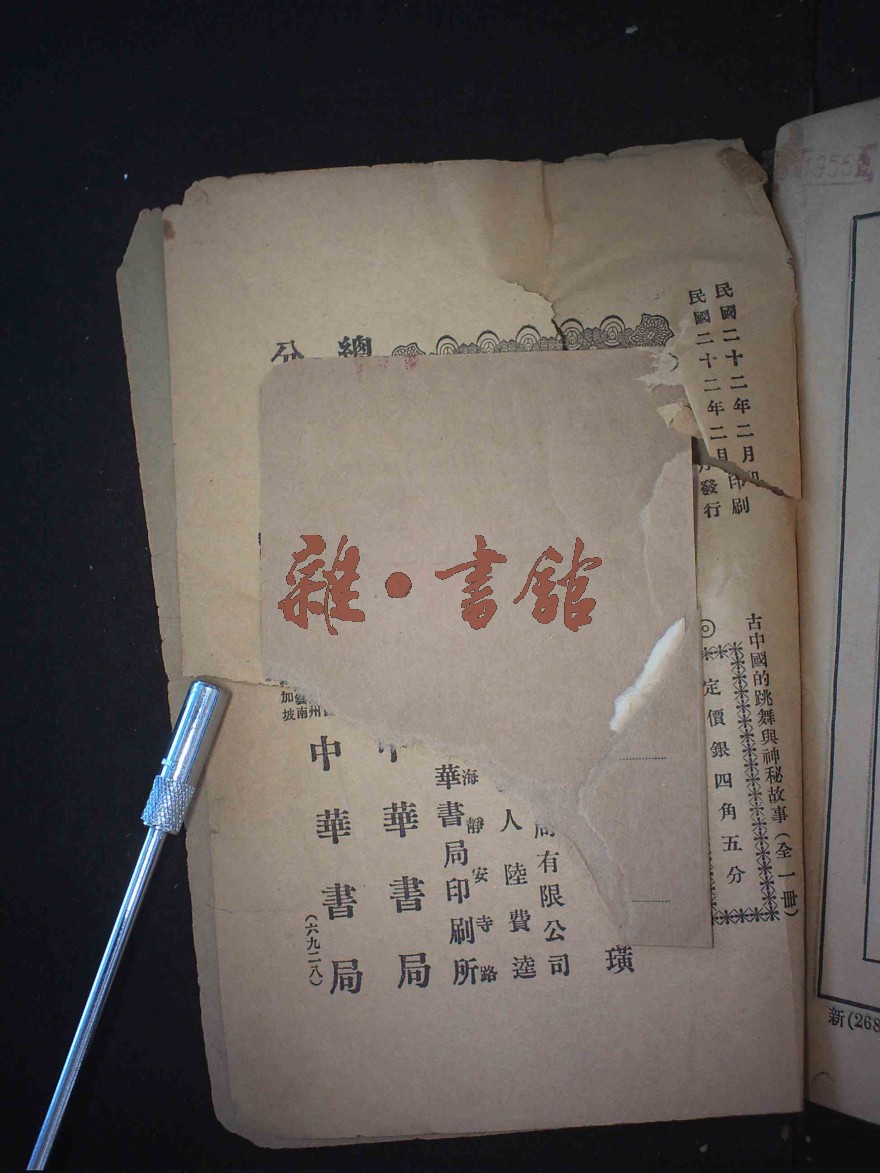 民國二十二年二月印刷
民國二十二年二月發行
古中國的跳舞與神秘故事（全一冊）
◎定價銀四角五分
璜
有限公司
人陸費逵
海靜安寺路
華書局印刷所
總
中華書局
分
州南坡
加
中華書局
（六九二八）
雜·書館
1956
新(268